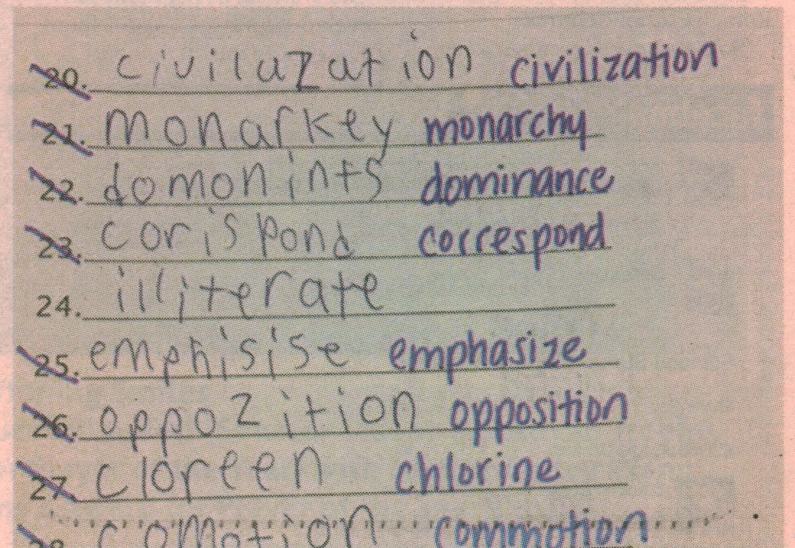 20. civilazation civilization
21. monarkey monarchy
22. domonints dominance
23. corispond correspond
24. illiterate
25. emphisise emphasize
26. oppozition opposition
27. cloreen chlorine
28. comotion commotion